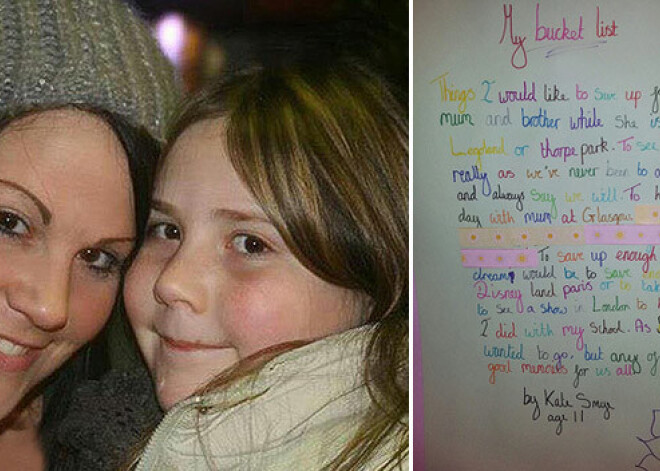 My bucket list
Things I would like to save up
mum and brother while she is
Legoland or thorpe park. To see
really as we've never been to a
and always say we will. To
day with mum at Glasgow
To save up enough
dream would be to save
Disney land paris or to
to see a show in London to
I did with my school. As
wanted to go, but any of
good memories for us all
by Kate
age 11